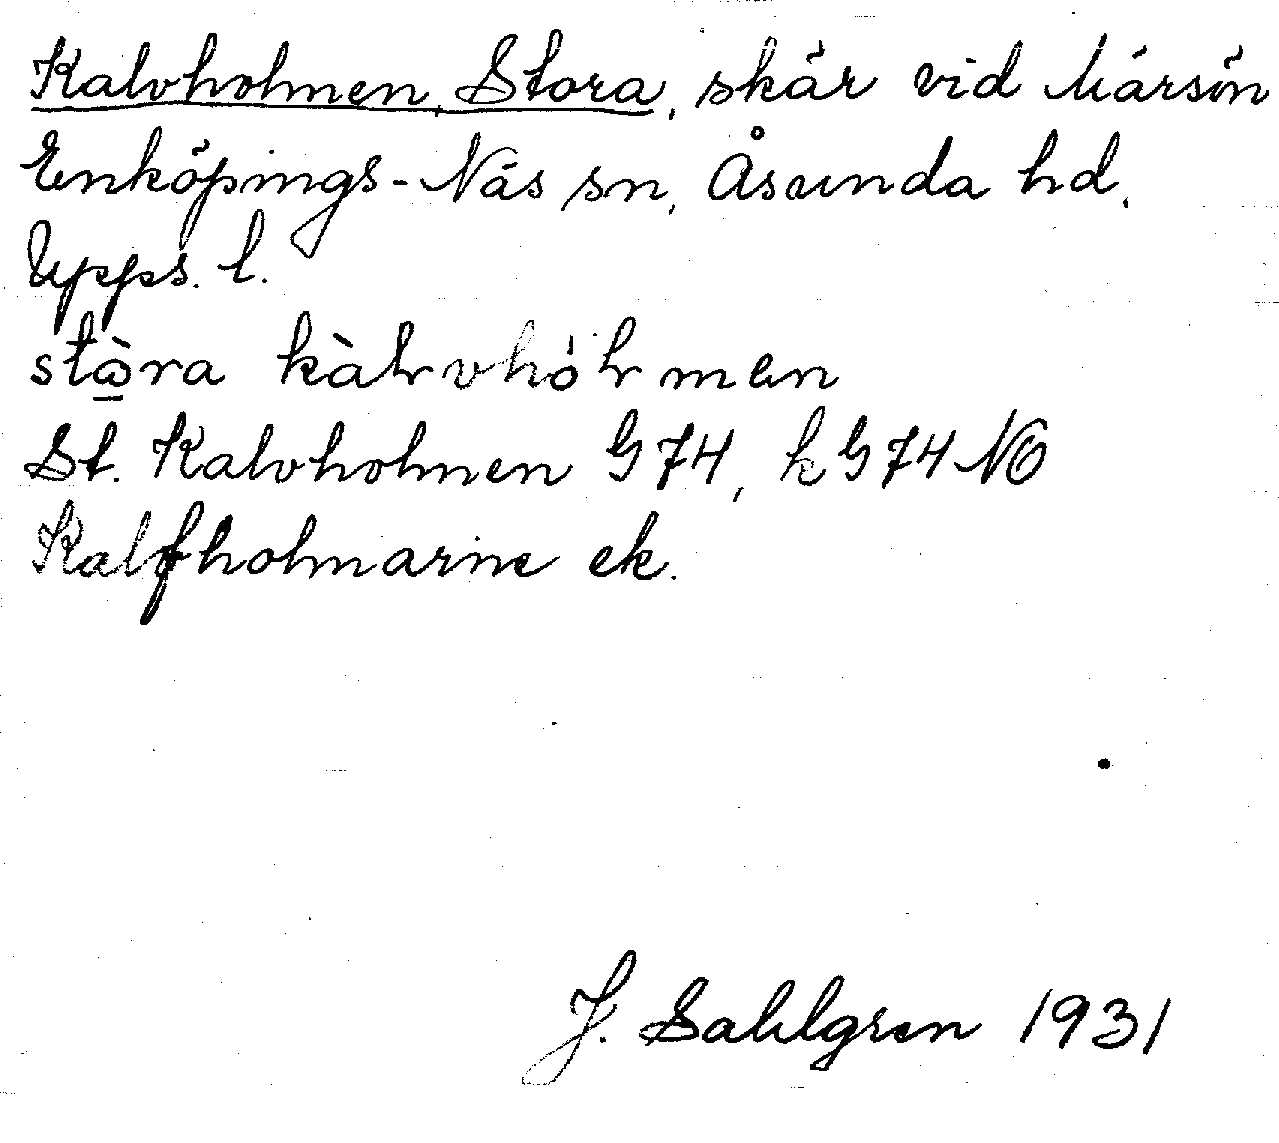 Kalvholmen, Stora, skär vid Märsön
Enköpings-Näs sn, Åsunda hd,
Upps. l.
stɷ̀ra
St. Kalvholmen G 74, k G 74 NO
Kalfholmarne ek.
J. Sahlgren 1931